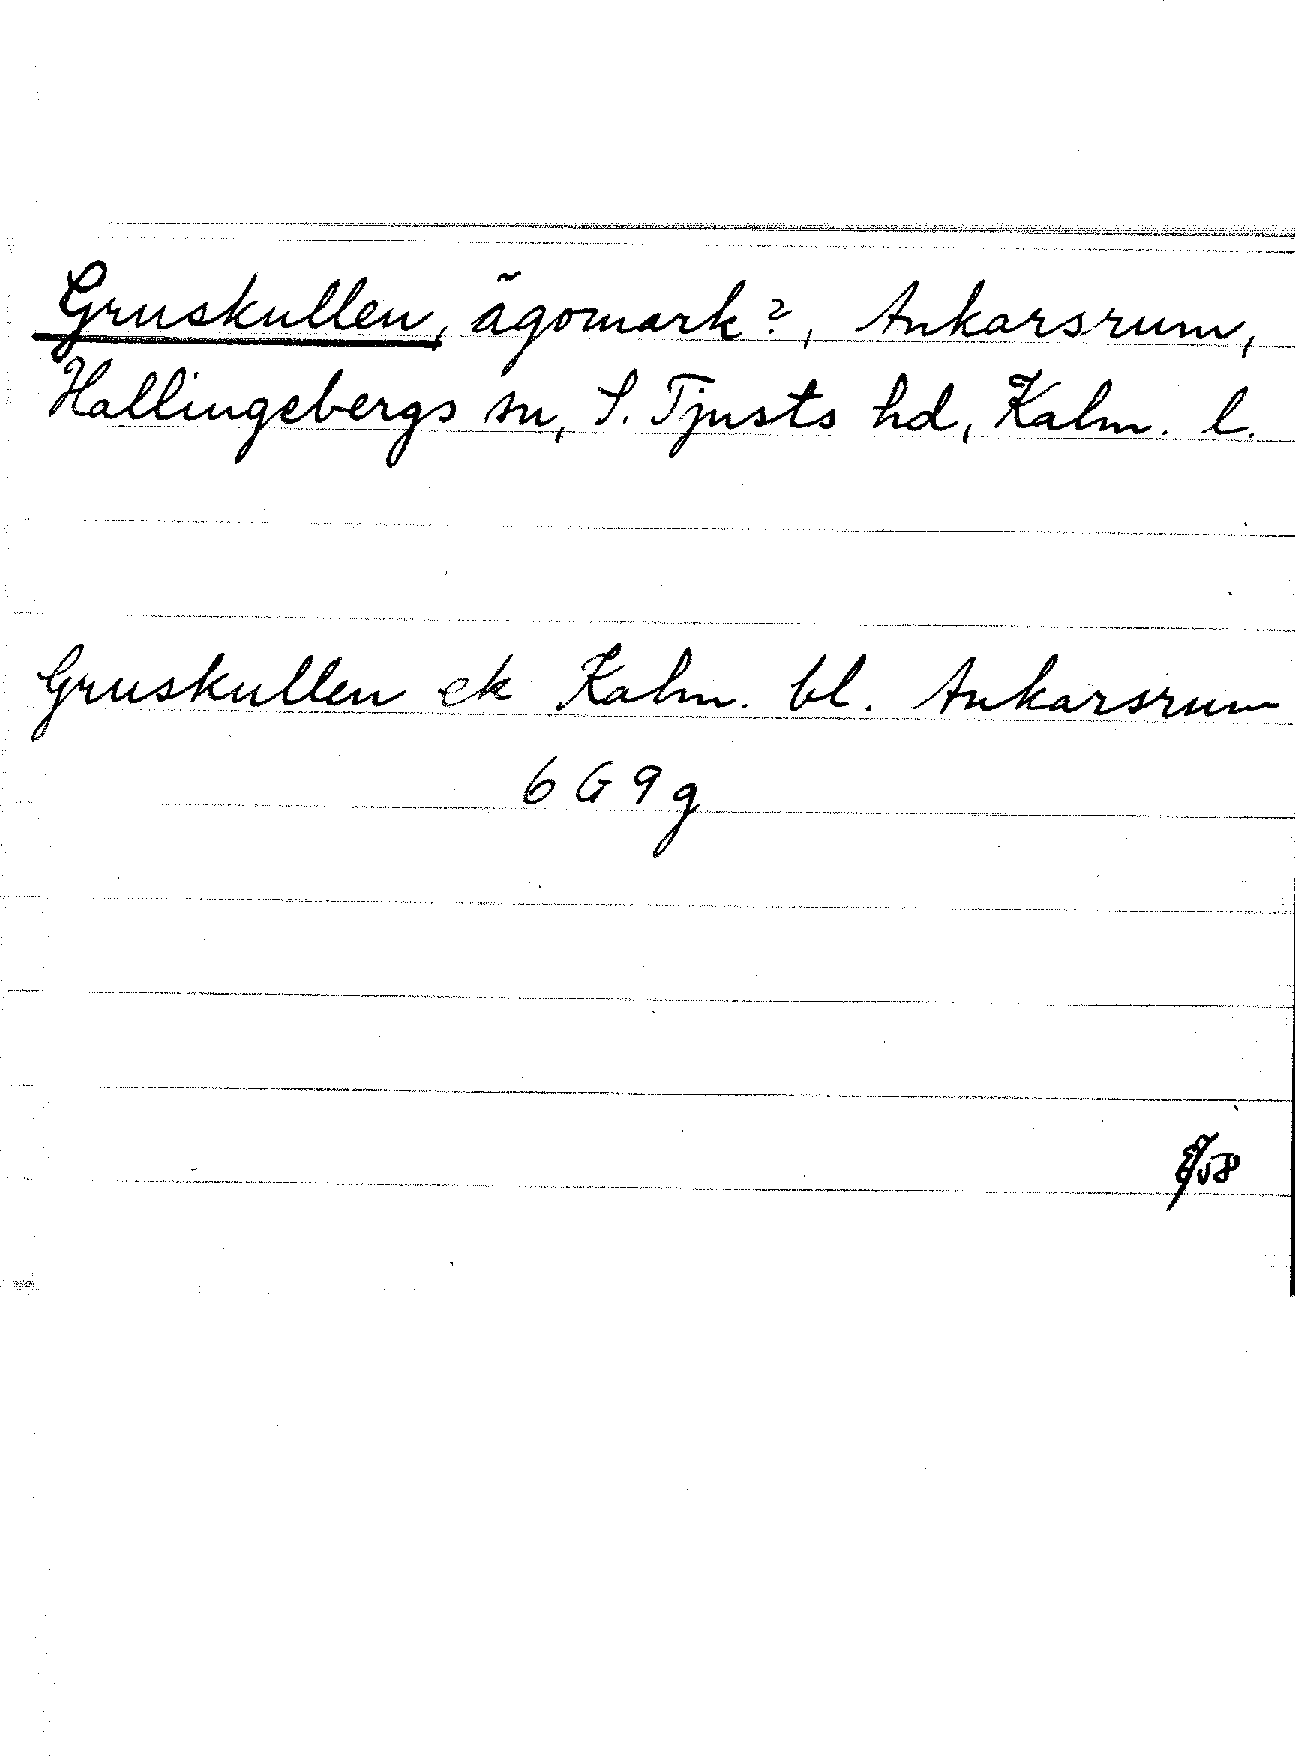 Gruskullen, ägomark?, Ankarsrum,
Hallingebergs sn, S. Tjusts hd, Kalm. l.
Gruskullen ek Kalm. bl. Ankarsrum
6 G 9 g